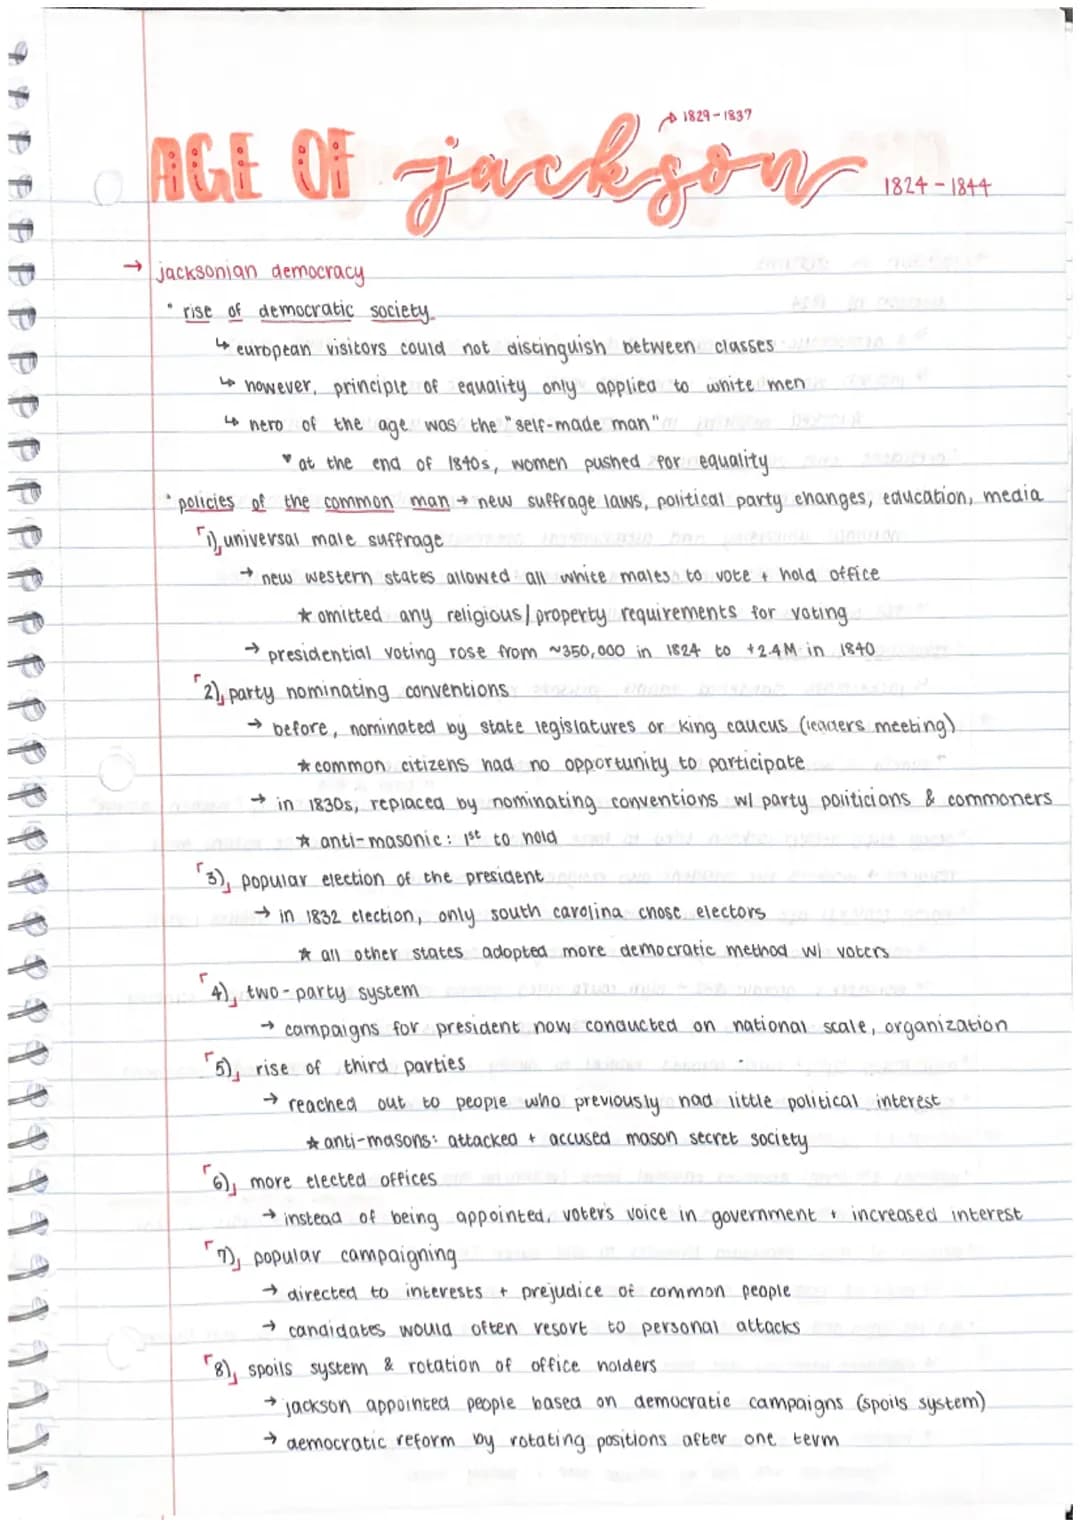 ↱ 1829-1837
AGE OF jackson 1824-1844
→ jacksonian democracy
• rise of democratic society
↳ european visitors could not distinguish between classes
↳ however, principle of equality only applied to white men
↳ hero of the age was the "self-made man"
▾ at the end of 1840s, women pushed for equality
• policies of the common man → new suffrage laws, political party changes, education, media
1) universal male suffrage
→ new western states allowed all white males to vote + hold office
★ omitted any religious/property requirements for voting
→ presidential voting rose from ~350,000 in 1824 to +2.4M in 1840
2) party nominating conventions
→ before, nominated by state legislatures or king caucus (leaders meeting)
★ common citizens had no opportunity to participate
→ in 1830s, replaced by nominating conventions w/ party politicians & commoners
★ anti-masonic: 1st to hold
3) popular election of the president
→ in 1832 election, only south carolina chose electors
★ all other states adopted more democratic method w/ voters
4) two-party system
→ campaigns for president now conducted on national scale, organization
5) rise of third parties
→ reached out to people who previously had little political interest
★ anti-masons: attacked + accused mason secret society
6) more elected offices
→ instead of being appointed, voter's voice in government + increased interest
7) popular campaigning
→ directed to interests + prejudice of common people
→ candidates would often resort to personal attacks
8) spoils system & rotation of office holders
→ jackson appointed people based on democratic campaigns (spoils system)
→ democratic reform by rotating positions after one term